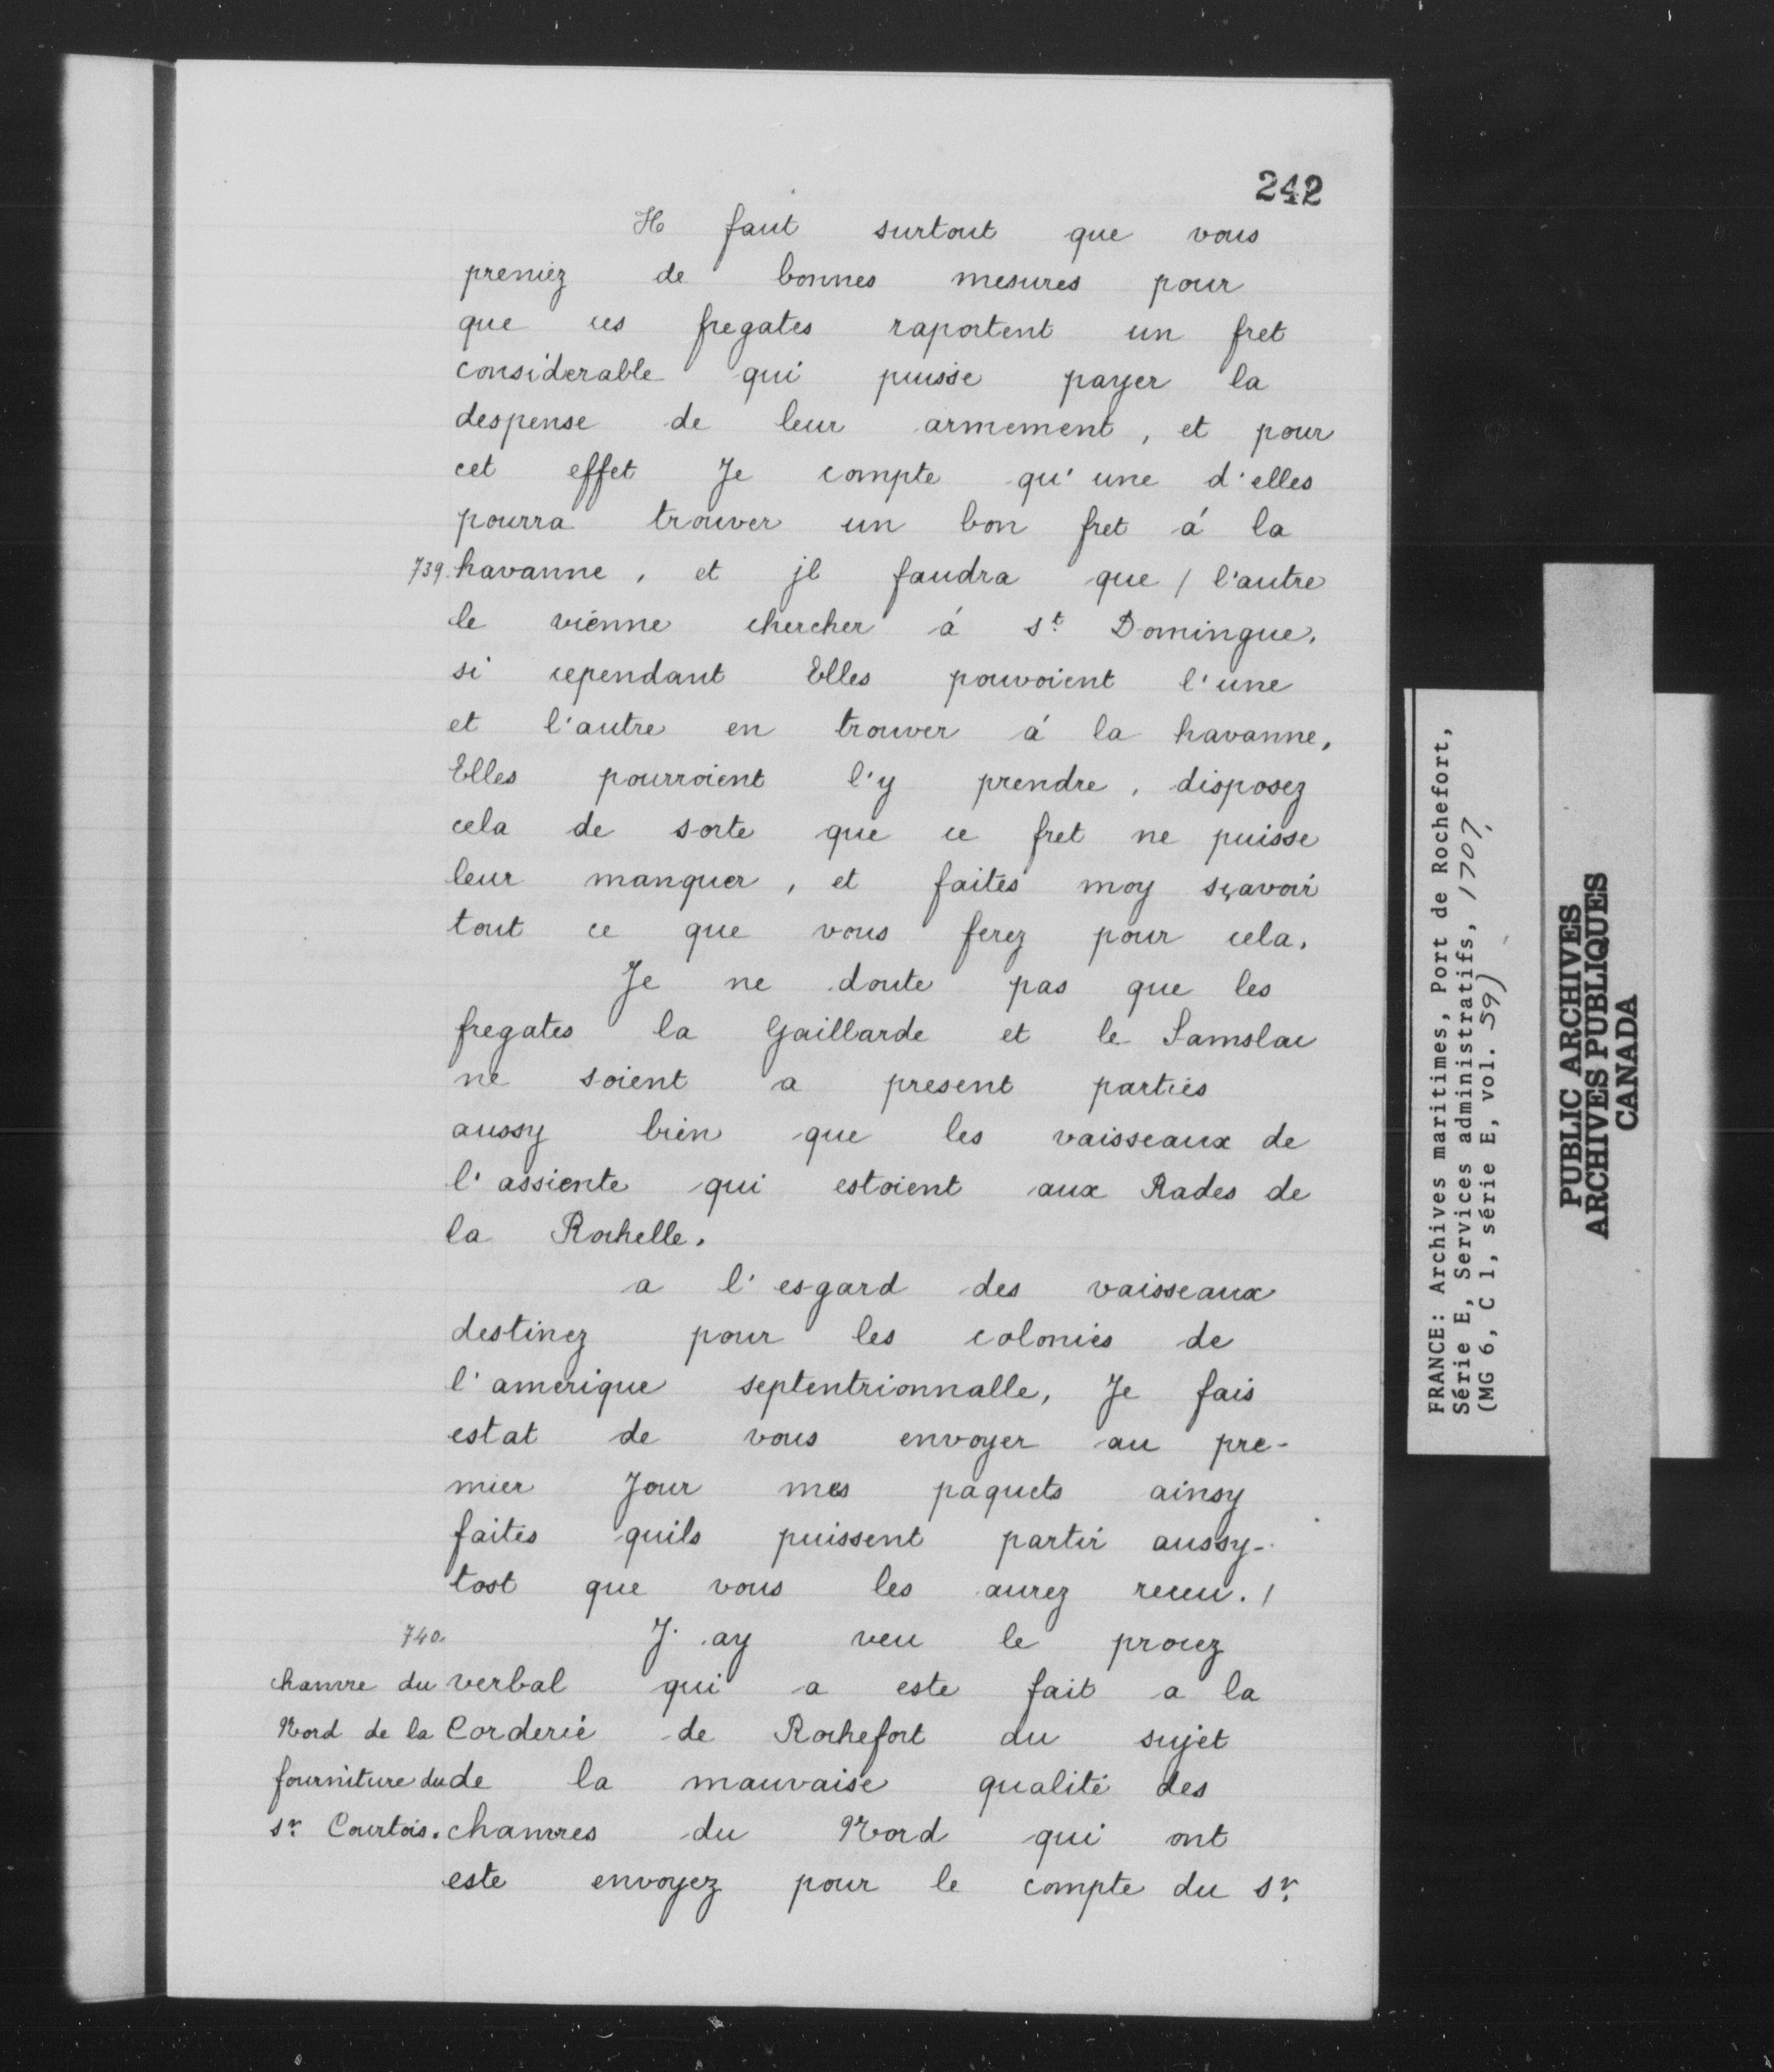 242
Il faut surtout que vous
preniez de bonnes mesures pour
que ces fregates raportent un fret
considerable qui puisse payer la
despense de leur armement, et pour
cet effet Je compte qu'une d'elles
pourra trouver un bon fret á la
739. havanne, et jl faudra que / l'autre
le vienne chercher á st Domingue.
si cependant Elles pouvoient l'une
et l'autre en trouver á la havanne,
Elles pourroient l'y prendre, disposez
cela de sorte que ce fret ne puisse
leur manquer, et faites moy sçavoir
tout ce que vous ferez pour cela.
Je ne doute pas que les
fregates la Gaillarde et le Samslac
ne soient a present parties
aussy bien que les vaisseaux de
l'assiente qui estoient aux Rades de
la Rochelle.
a l'esgard des vaisseaux
destinez pour les colonies de
l'amerique septentrionnalle, Je fais
estat de vous envoyer au pre-
mier Jour mes paquets ainsy
faites quils puissent partir aussy-
tost que vous les aurez receu. /
740. J'ay veu le procez
chanvre du verbal qui a este fait a la
Nord de la Corderie de Rochefort du sujet
fourniture du de la mauvaise qualité des
sr Courtois. chanvres du Nord qui ont
este envoyez pour le compte du sr
FRANCE: Archives maritimes, Port de Rochefort,
Série E, Services administratifs, 1707,
(MG 6, C 1, série E, vol. 59)
PUBLIC ARCHIVES
ARCHIVES PUBLIQUES
CANADA